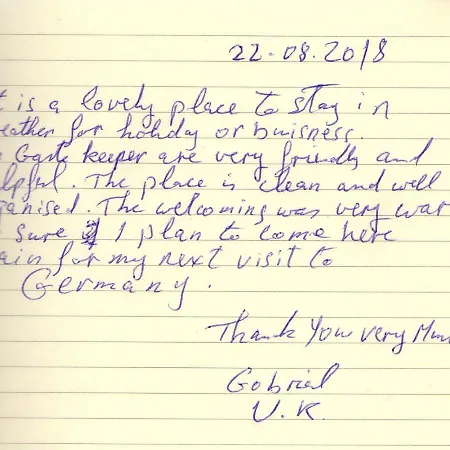 22-08.2018
t is a lovely place to stay in
eather for holiday or buisness.
Gark keeper are very friendly and
lpful. The place is clean and well
ganised. The welcoming was very war
Sure I plan to come here
ain for my next visit to
Germany.
Thank You very Mu
Gabriel
U.K.